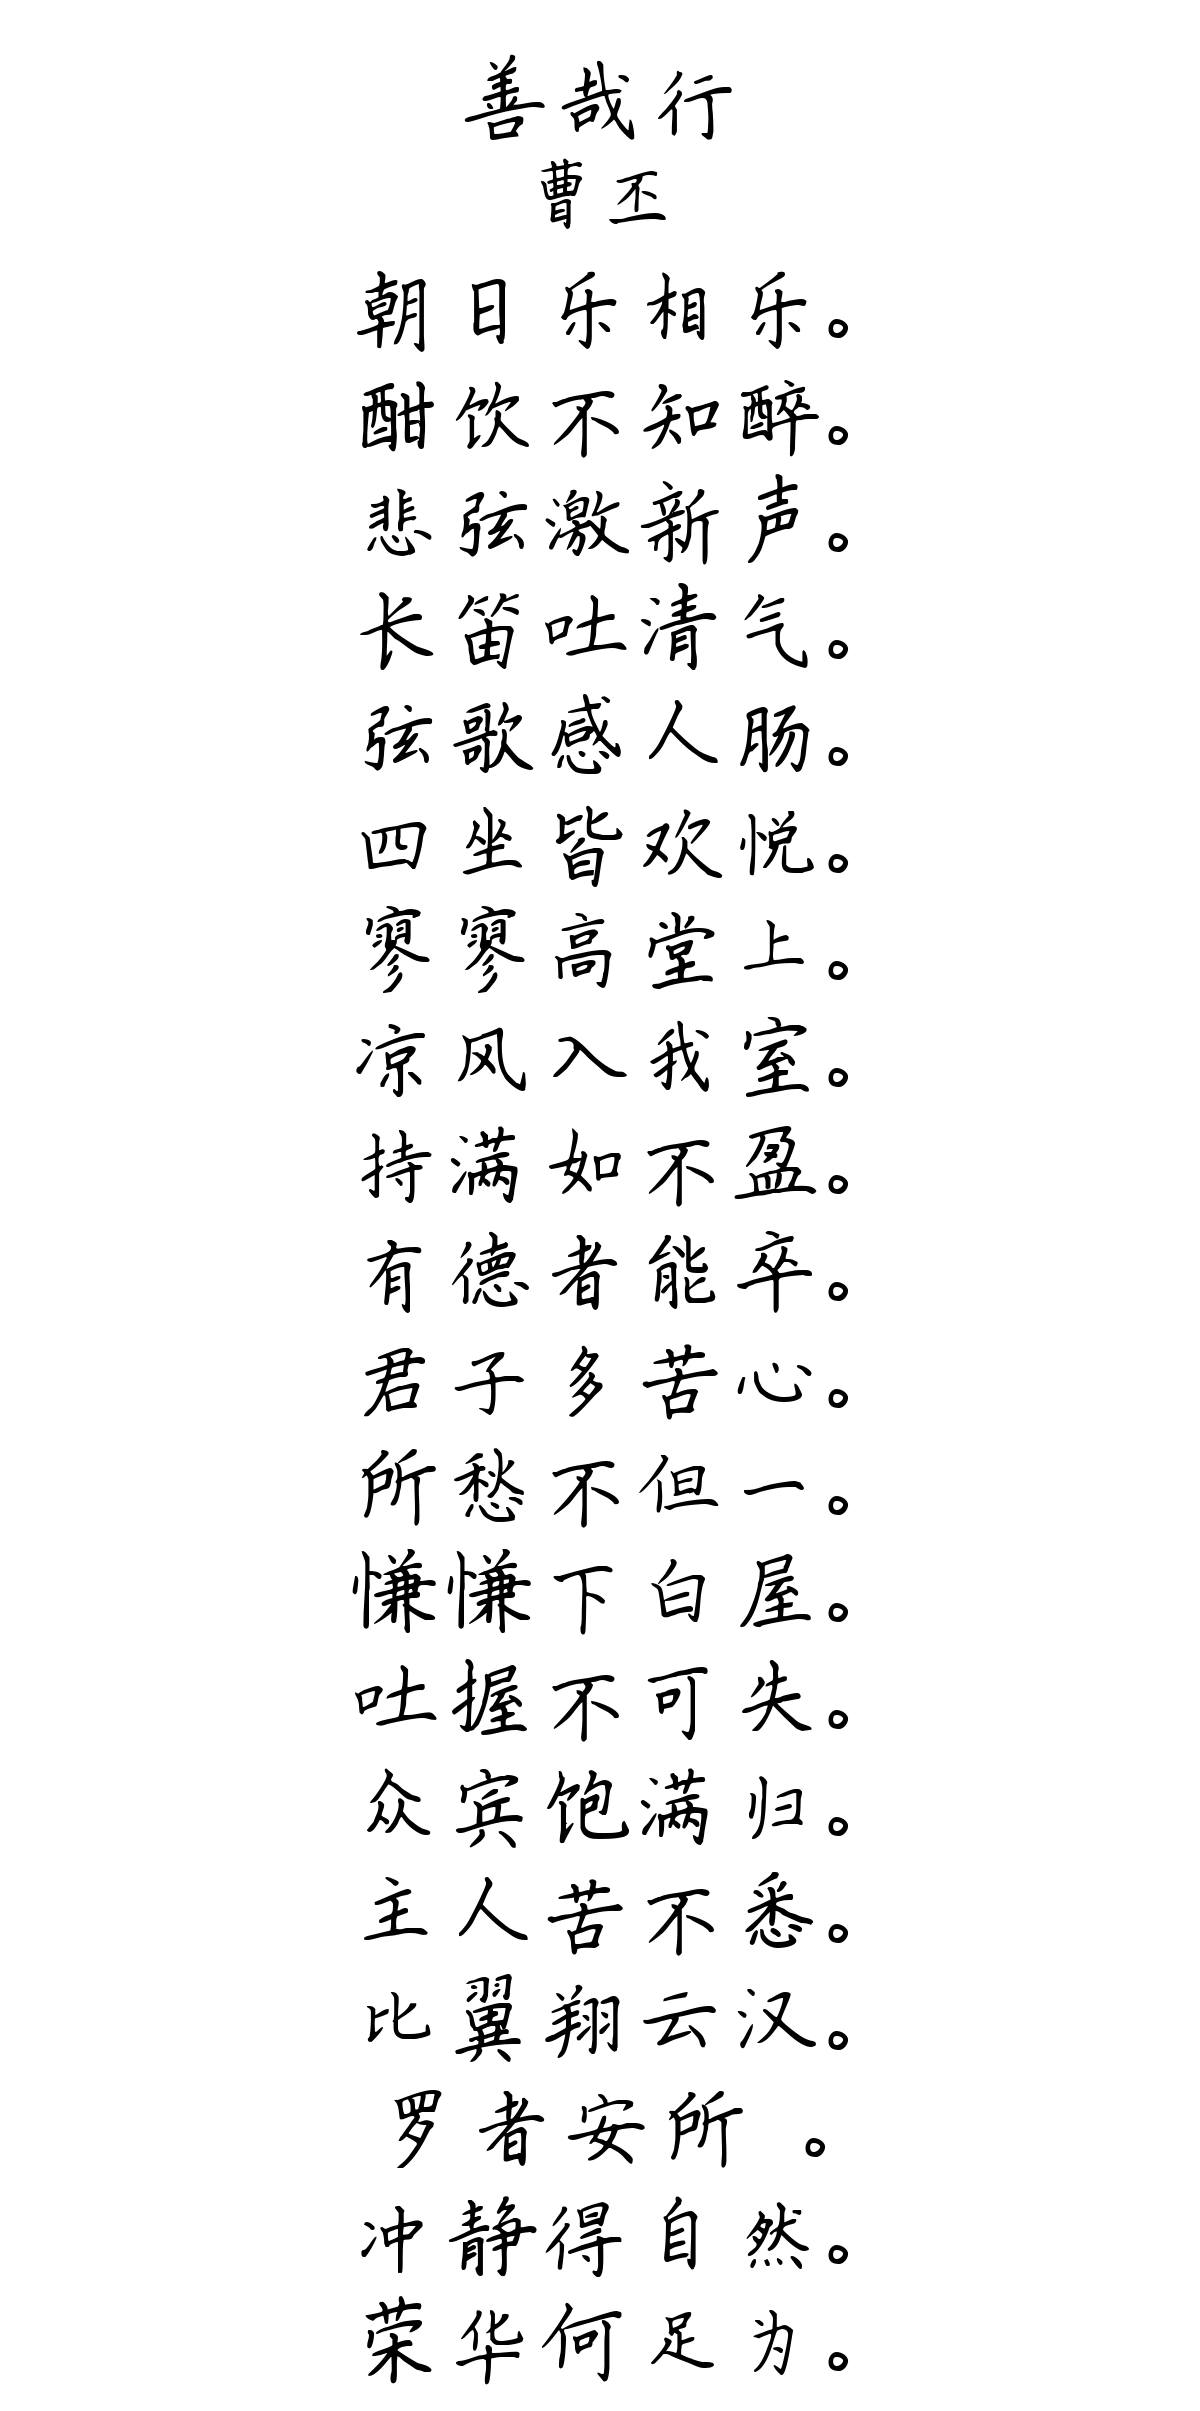 善哉行
曹丕
朝日乐相乐。
酣饮不知醉。
悲弦激新声。
长笛吐清气。
弦歌感人肠。
四坐皆欢悦。
寥寥高堂上。
凉风入我室。
持满如不盈。
有德者能卒。
君子多苦心。
所愁不但一。
慊慊下白屋。
吐握不可失。
众宾饱满归。
主人苦不悉。
比翼翔云汉。
罗者安所 。
冲静得自然。
荣华何足为。